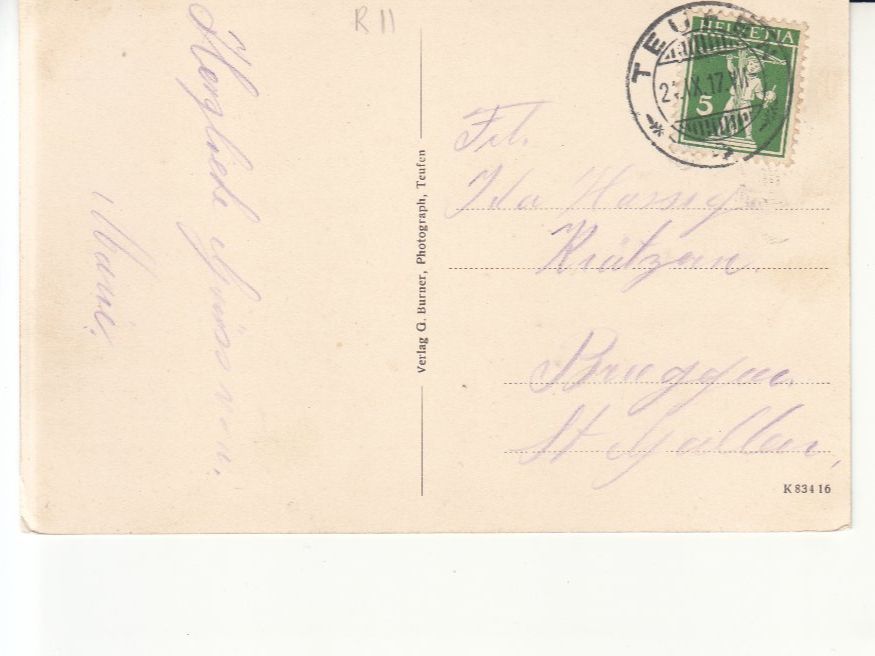 R 11
Herzliche Grüss von
Marie.
Verlag G. Burner, Photograph, Teufen
TEUFEN
IX.17.
HELVETIA
5
Frl.
Ida
Bruggen
St Gallen,
K 834 16